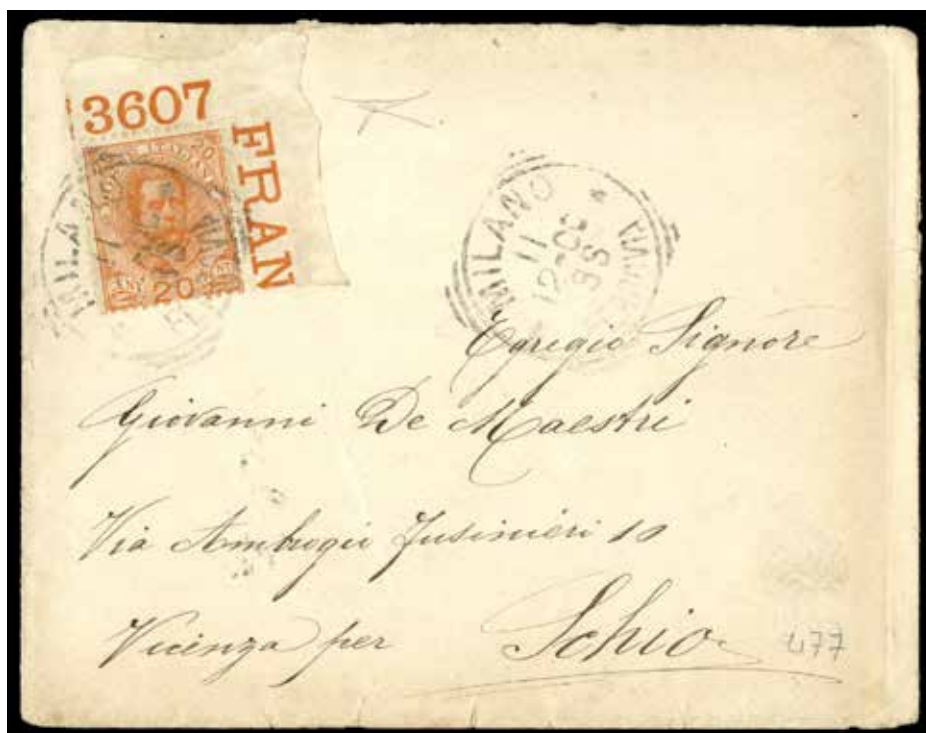 3607
FRAN
20
20
MILANO
11
12
98
Egregio Signore
Giovanni De Maestri
Via Ambrogio Fusinieri 10
Vicenza per Schio
477